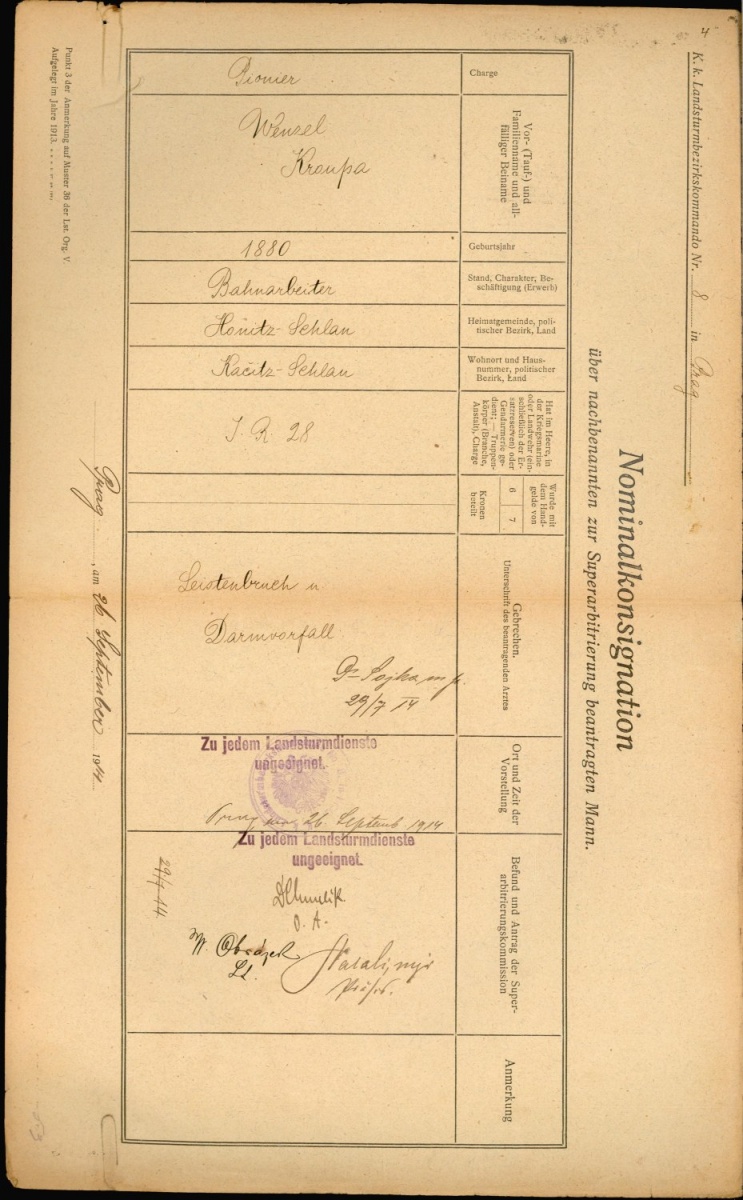 4
K. k. Landsturmbezirkskommando Nr. 8 in Prag
Nominalkonsignation
über nachbenannten zur Superarbitrierung beantragten Mann.
Charge
Pionier
Vor- (Tauf-) und
Familienname und all-
fälliger Beiname
Wenzel
Kroupa
Geburtsjahr
1880
Stand, Charakter, Be-
schäftigung (Erwerb)
Bahnarbeiter
Heimatgemeinde, poli-
tischer Bezirk, Land
Honitz-Schlan
Wohnort und Haus-
nummer, politischer
Bezirk, Land
Kacitz-Schlan
Hat im Heere, in
der Kriegsmarine
oder Landwehr (ein-
schließlich der Er-
satzreserven) oder
Gendarmerie ge-
dient; — Truppen-
körper (Branche,
Anstalt), Charge
I R 28
Wurde mit
dem Hand-
gelde von
6 7
Kronen
beteilt
Gebrechen.
Unterschrift des beantragenden Arztes
Leistenbruch u
Darmvorfall
Dr Sojka m.p.
29/7 14
Ort und Zeit der
Vorstellung
Zu jedem Landsturmdienste
ungeeignet.
Prag am 26. Septemb 1914
Befund und Antrag der Super-
arbitrierungskommission
Zu jedem Landsturmdienste
ungeeignet.
O. A.
Lt.
Präses.
29/7 14.
Anmerkung
Prag, am 26 September 1914.
Punkt 3 der Anmerkung auf Muster 36 der Lst. Org. V.
Aufgelegt im Jahre 1913.